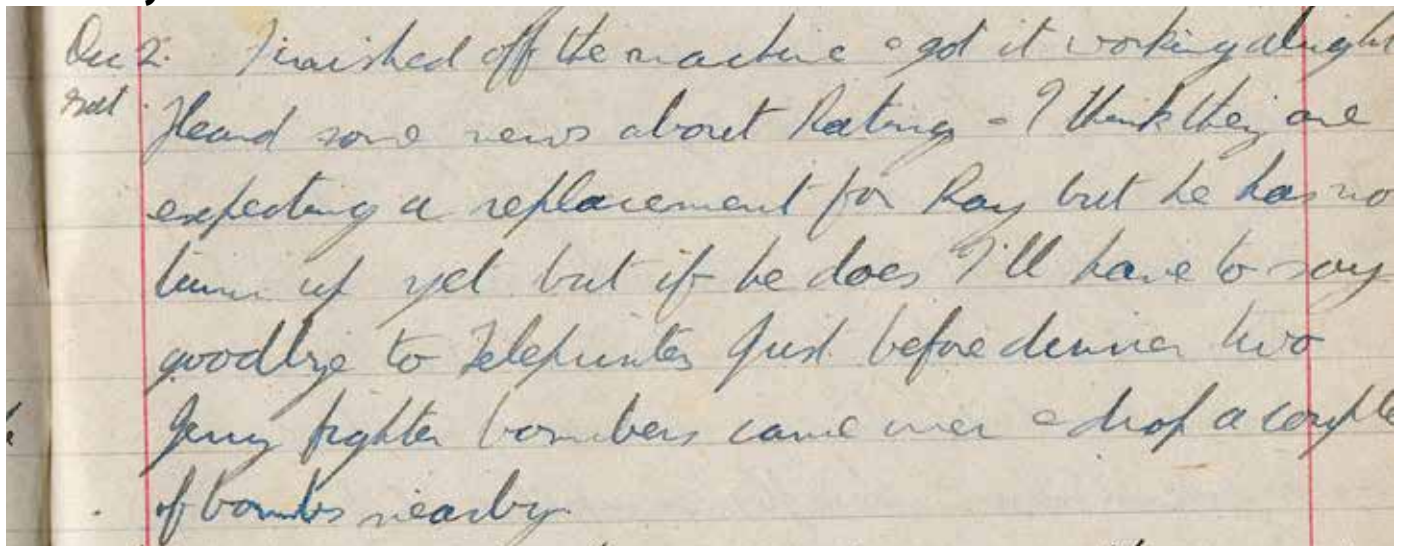 Dec 2. Finished off the machine & got it working alright
Sat. Heard some news about Ratings - I think they are
expecting a replacement for Ray but he has no
turn up yet but if he does I'll have to say
goodbye to Teleprinter Just before dinner two
Jerry fighter bombers came over & drop a couple
of bombs nearby